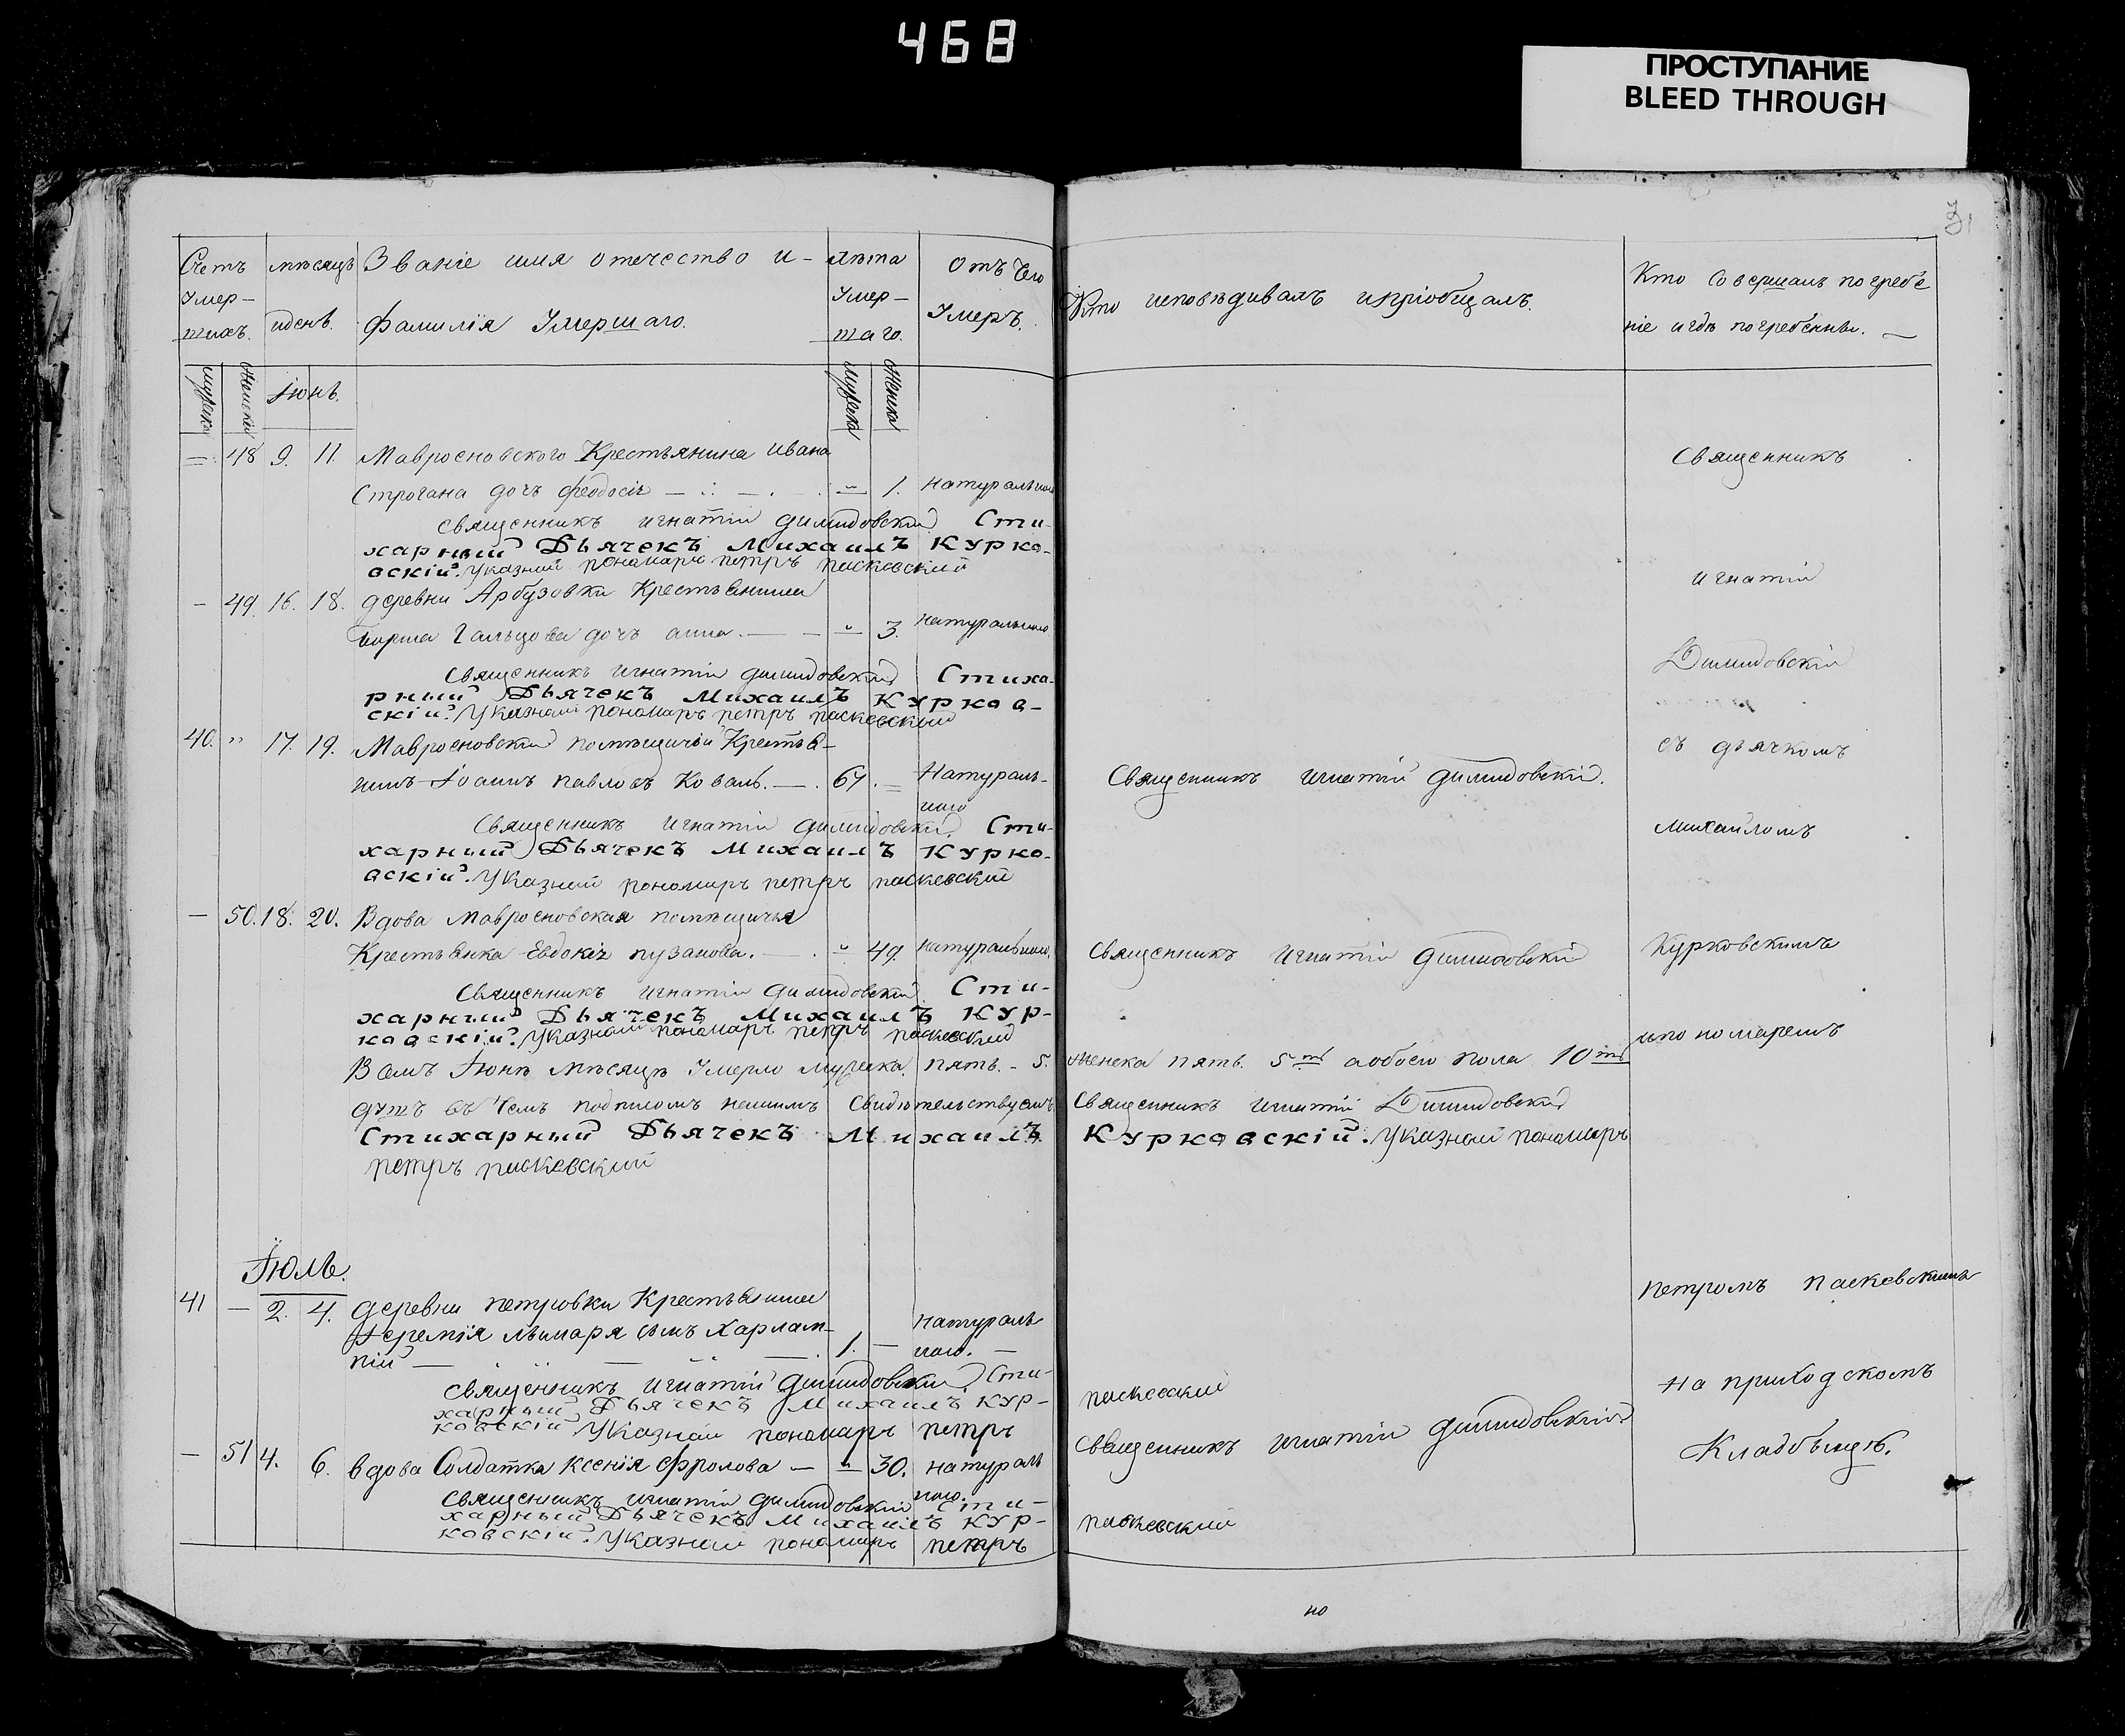 468
ПРОСТУПАНИЕ
BLEED THROUGH
Счетъ
Умер-
шихъ.
мѣсяцъ
иденъ.
Званіе имя отечество и-
фамилія Умершаго.
лѣта
Умер-
шаго.
отъ Чего
Умеръ.
Кто исповѣдивалъ ипріобщалъ.
Кто Совершалъ погребе
ніе игдѣ погребенны.
мужска
женска
Іюнь.
мужска
женска
48 9. 11. Мавросновского Крестьянина ивана
Строгана дочь феодосія 1. натуральною
священникъ игнатій димидовскій Сти-
харный Дьячекъ Михаилъ Курко-
вскій. Указный пономарь петръ паскевский
- 49. 16. 18. деревни Арбузовки Крестьянина
Гальцова дочь анна. 3. натуральною
Священникъ игнатій димидовскій Стиха-
рный Дьячекъ Михаилъ Курков-
скій. Указный пономарь петръ паскевский
40. " 17. 19. Мавросновский помѣщичій Крестья-
нинъ Іоаннъ павловъ Коваль. 67. Натураль-
ною
Священникъ игнатій димидовскій.
Священникъ игнатій димидовскій. Сти-
харный Дьячекъ Михаилъ Курко-
вскій. Указный пономарь петръ паскевский
- 50. 18. 20. Вдова Мавросновская помѣщичья
Крестьянка Евдокія пузанова. 49. натуральною.
Священникъ игнатій димидовскій
Священникъ игнатій димидовскій. Сти-
харный Дьячекъ Михаилъ Кур-
ковскій. Указный пономарь петръ паскевский
Всмъ Іюнѣ мѣсяцѣ Умерло мужска пять. - 5. женска пять. 5ть аобоего пола 10ть
душъ въ Чемъ подписомъ нашимъ Свидѣтельствуемъ. Священникъ игнатій Димидовскій
Стихарный Дьячекъ Михаилъ Курковскій. Указный пономарь
петръ паскевский
Іюль.
41 - 2. 4. деревни петровки Крестьянина
Іеремія лымаря сынъ Харлам-
пій 1. натураль
ною.
священникъ игнатій димидовскій Сти-
харный Дьячекъ Михаилъ Кур-
ковскій Указный пономарь петръ паскевский
- 51 4. 6. вдова Солдатка Ксенія Фролова - 30. натураль
ною.
Священникъ игнатій димидовскій
Священникъ игнатій димидовскій Сти-
харный Дьячекъ Михаилъ Кур-
ковскій. Указный пономарь петръ паскевский
Священникъ
игнатій
Димидовскій
съ дьячкомъ
михайломъ
Курковскимъ
ипономаремъ
петромъ паскевскимъ
на приходскомъ
Кладбыщѣ.
но